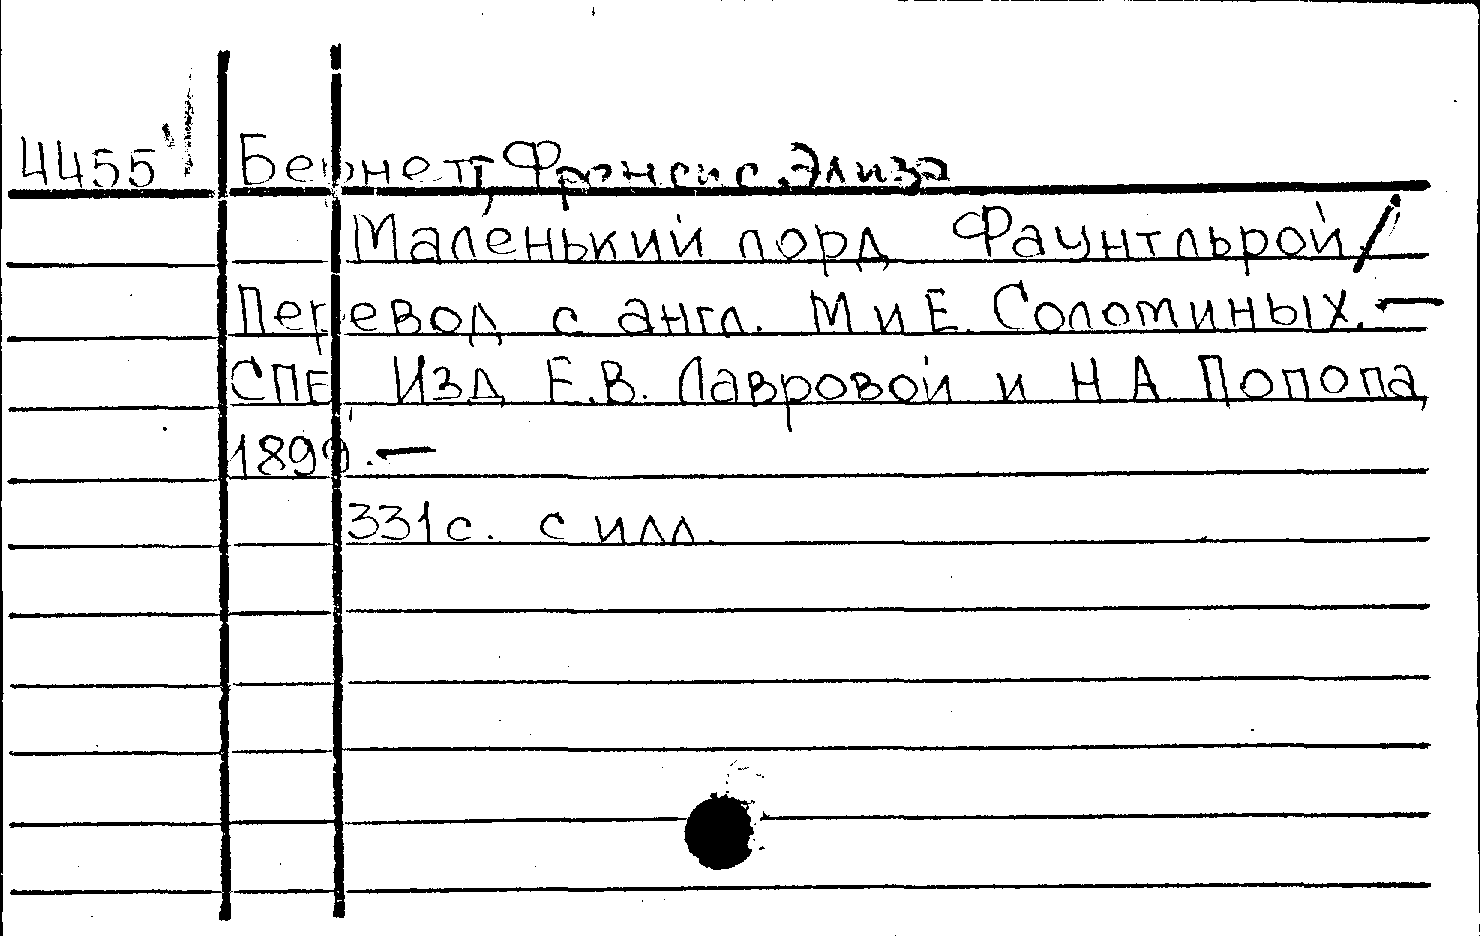 4455 Бернетт, Фрэнсис Элиза
Маленький лорд Фаунтльрой /
Перевод с англ. М и Е. Солотиных. —
СПБ Изд Е.В. Лавровой и Н А Попопа,
1899. —
331 с. с илл.